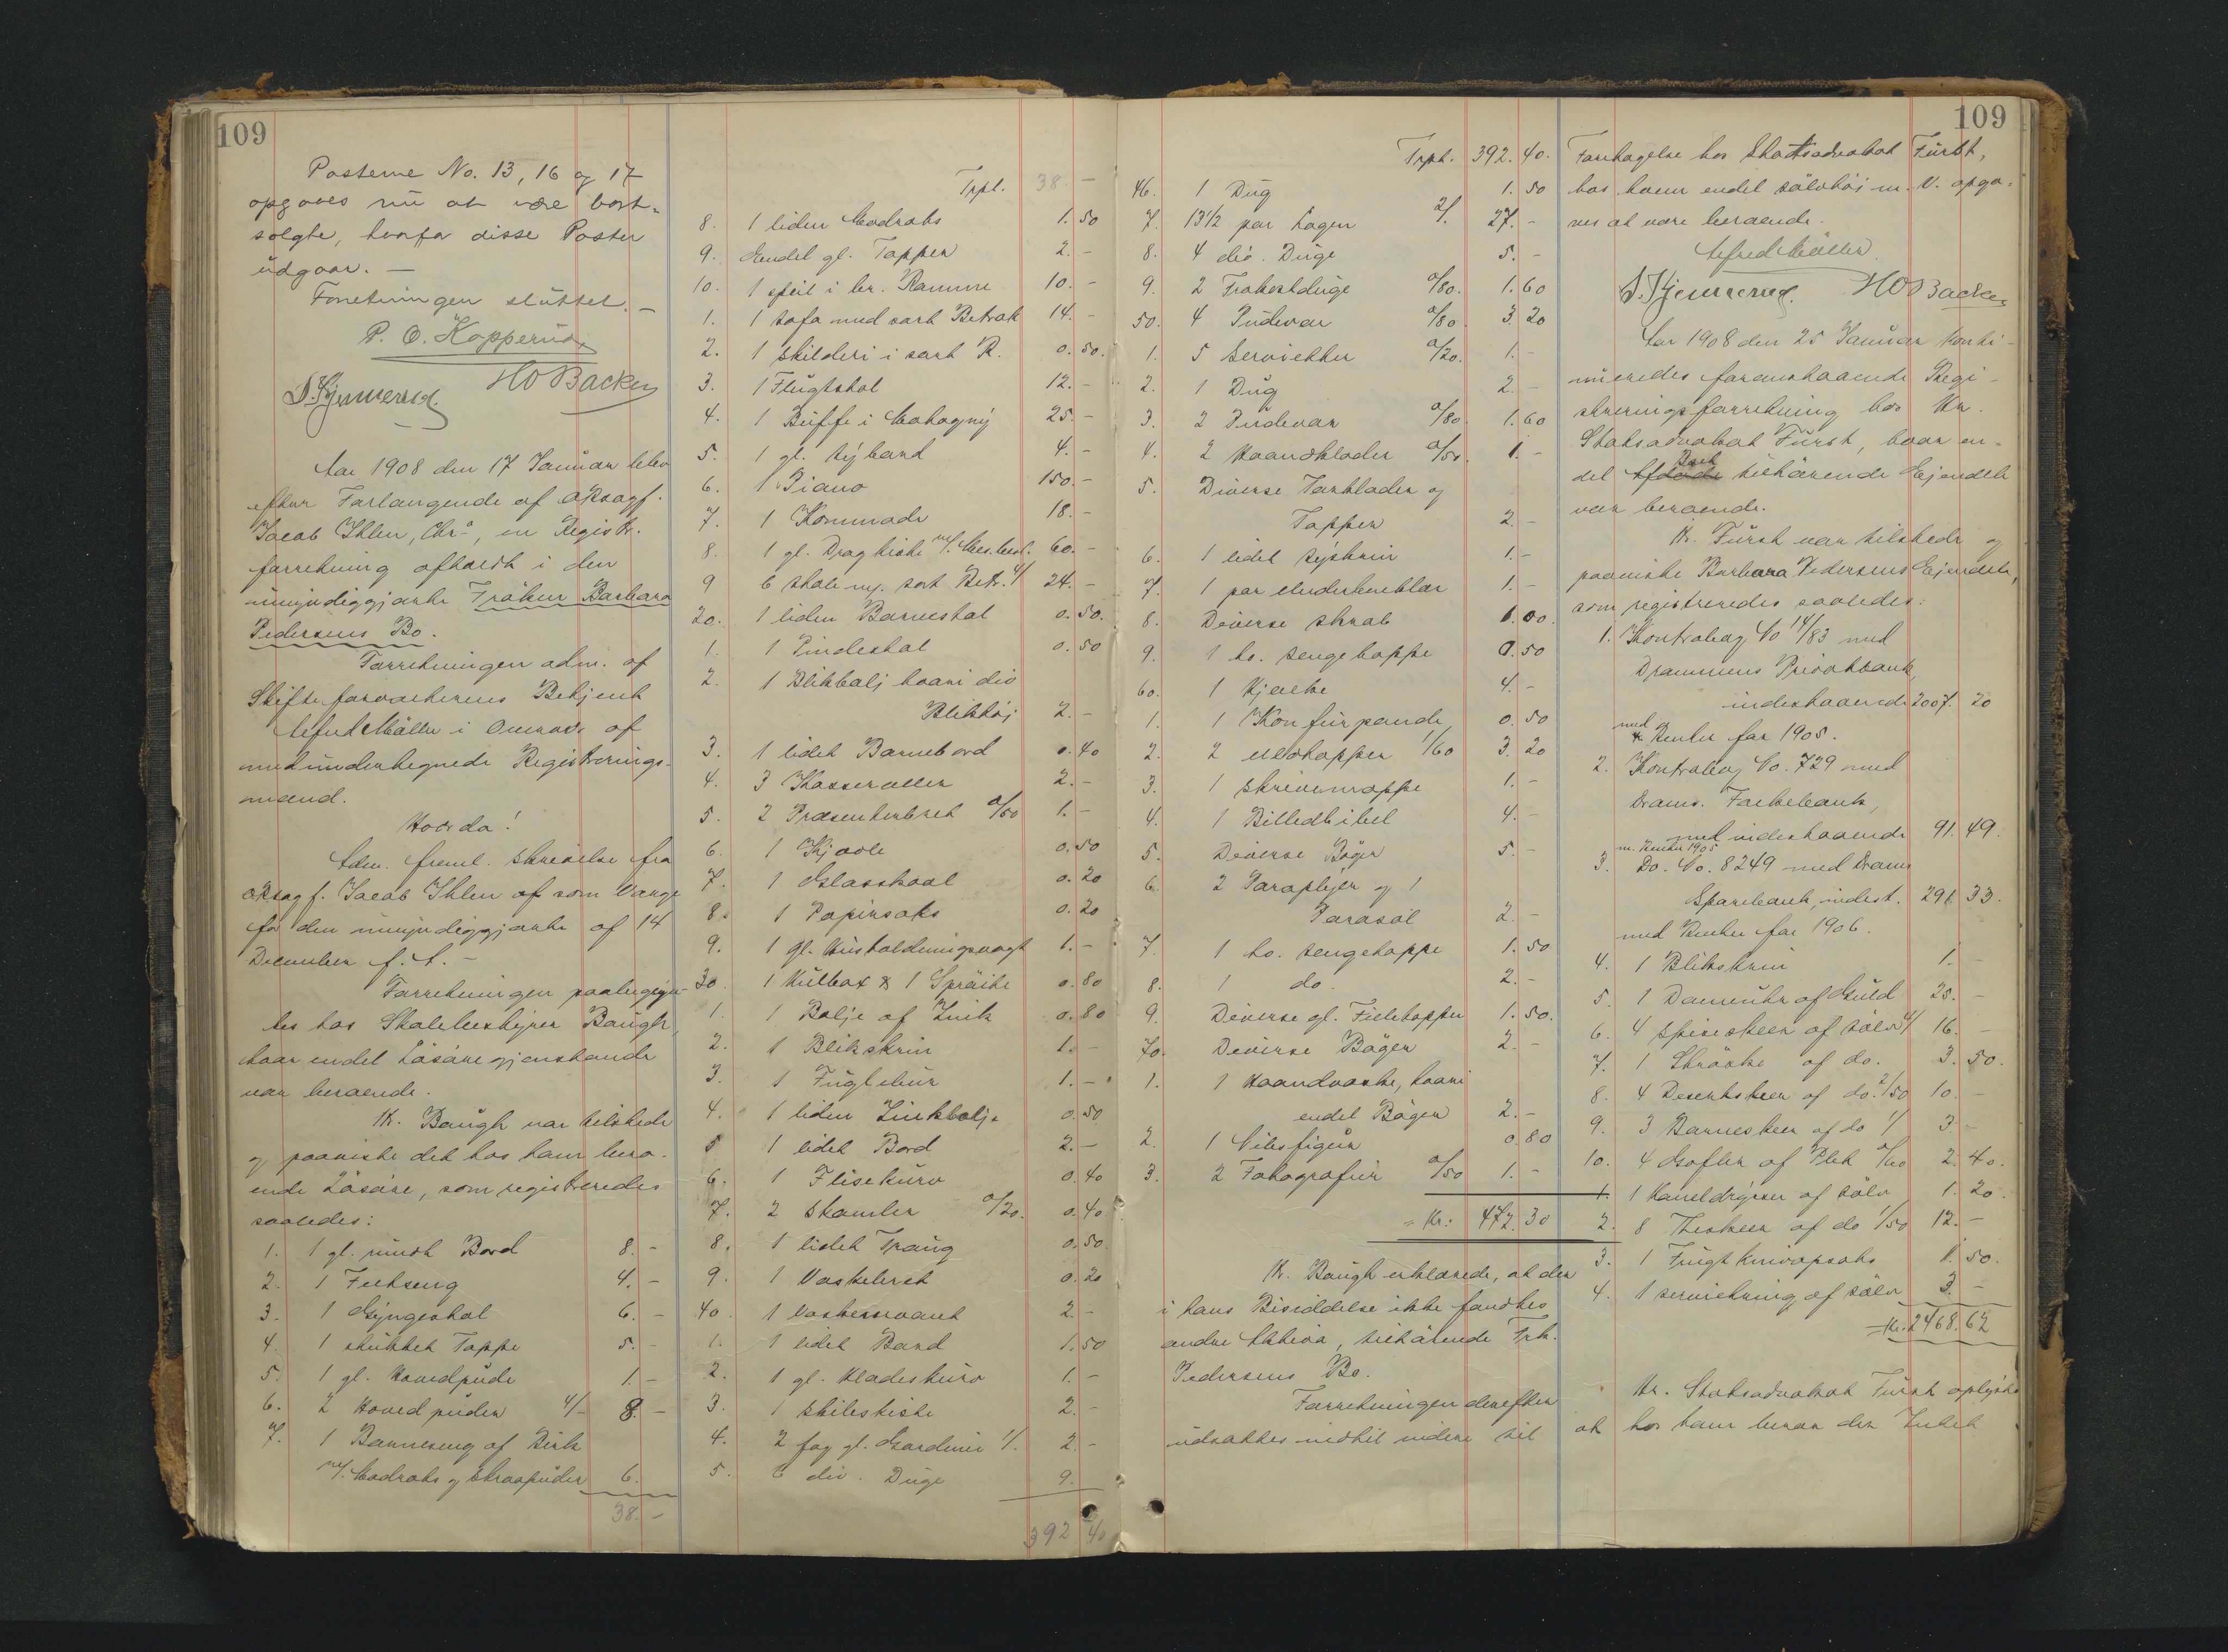 109
Posterne No. 13, 16 og 17
opgaves nu at være bort-
solgte, hvorfor disse Poster
udgaar. —
Forretningen sluttet. —
P. O. Kopperud
HO Backer
Aar 1908 den 17 Januar blev
efter Forlangende af oRsagf.
Jacob Ihlen, Chra, en Registr.
forretning afholdt i den
umyndiggjorte Frøken Barbara
Pedersens Bo.
Forretningen adm. af
Skifteforvalterens Betjent
Alfred Møller i Overvær af
medundertegnede Registrerings-
mænd.
Hvorda!
Adm. freml. Skrivelse fra
oRsagf. Jacob Ihlen af som Værge
for den umyndiggjorte af 14
December f. A. —
Forretningen paabegyn-
tes hos Skolebestyrer Baugh,
hvor endel Løsøregjenstande
var beroende.
Hr. Baugh var tilstede
og paaviste det hos ham bero-
ende Løsøre, som registreredes
saaledes:
1. 1 gl. rundt Bord 8. -
2. 1 Feltseng 4. -
3. 1 Gyngestol 6. -
4. 1 stukket Tæppe 5. -
5. 1 gl. Hovedpude 1. -
6. 2 Hovedpuder 4/- 8. -
7. 1 Barneseng af Birk
m/. Madrats og Skraapuder 6.
38. -
Trpt. 38. -
8. 1 liden Madrats 1. 50
9. Endel gl. Tæpper 2. -
10. 1 speil i br. Ramme 10. -
1. 1 Sofa med sort Betræk 14. -
2. 1 skilderi i sort R. 0. 50.
3. 1 Flugtstol 12. -
4. 1 Buffe i Mahogny 25 -
5. 1 gl. Sybord 4. -
6. 1 Piano 150. -
7. 1 Kommode 18. -
8. 1 gl. Dragkiste m/. Mes.besl. 60. -
9 6 stole m. sort Betr. 4/ 24. -
20. 1 liden Barnestol 0. 50.
1. 1 Pindestol 0. 50
2. 1 Blikbalj hvori div
Bliktøj 2. -
3. 1 lidet Barnebord 0. 40
4. 3 Kasseroller 2. -
5. 2 Præsenterbret 0/50 1. -
6. 1 Kjole 0. 50
7. 1 Glasskaal 0. 20
8. 1 Papirsaks 0. 20
9. 1 gl. Husholdningsvægt 1. -
30 1 Kulbox & 1 Spruite 0. 80
1. 1 Balje af Zink 0. 80
2. 1 Blikskrin 1. -
3. 1 Fuglebur 1. -
4. 1 liden Zinkbalje 0. 50
5 1 lidet Bord 2. -
6. 1 Flisekurv 0. 40
7. 2 Skamler 0/20. 0. 40
8. 1 lidet Traug 0. 50
9. 1 Vaskebret 0. 20
40. 1 Vaskeservant 2. -
1. 1 lidet Bord 1. 50
2. 1 gl. Kladeskurv 1. -
3. 1 Skibskiste 2. -
4. 2 fag gl. Gardiner 1/. 2. -
5. 6 div. Duge 9.
392 40
109
Trpt. 392. 40.
46. 1 Dug 1. 50
7. 13 1/2 par Lagen 2/. 27. -
8. 4 div. Duge 5. -
9. 2 Frokostduge 0/80. 1. 60
50. 4 Pudevar 0/80. 3. 20
1. 5 Servietter 0/20. 1. -
2. 1 Dug 2. -
3. 2 Pudevar 0/80 1. 60
4. 2 Haandklæder 0/50. 1. -
5. Diverse Tørklæder og
Tæpper 2. -
6. 1 lidet Syskrin 1. -
7. 1 par Underbenklær 1. -
8. Diverse skrab 1. 00.
9. 1 ho. sengetæppe 0. 50
60. 1 Kjælke 4. -
1. 1 Konfurpande 0. 50
2. 2 uldtæpper 1/60 3. 20
3. 1 skrivemappe 1. -
4. 1 Billedbibel 4. -
5. Diverse Bøger 5. -
6. 2 Paraplyer og 1
Parasol 2. -
7. 1 ho. sengetæppe 1. 50
8. 1 do. 2. -
9. Diverse gl. Filletæpper 1. 50.
70. Diverse Bøger 2. -
1. 1 Haandvæske, hvori
endel Bøger 2. -
2. 1 Gibsfigur 0. 80
3. 2 Fotografier 0/50 1. -
= Kr: 472. 30
Hr. Baugh erklærede, at der
i hans Besiddelse ikke fandtes
andre Aktiva, tilhørende Frk.
Pedersens Bo.
Forretningen derefter
udsattes indtil videre til
Foretagelse hos Statsadvokat Fürst,
hos hvem endel sølvtøi m. v. opga-
ves at være beroende.
Alfred Møller.
HO Backer
Aar 1908 den 25 Januar konti-
nueredes foranstaaende Regi-
streringsforretning hos Hr.
Statsadvokat Fürst, hvor en-
del Boet tilhørende Ejendele
var beroende.
Hr. Fürst var tilstede og
paaviste Barbara Pedersens Ejendele,
som registreredes saaledes:
1. Kontrabog No 14/83 med
Drammens Privatbank,
indestaaende 2007. 20
med Renter for 1905.
2. Kontrabog No. 729 med
Dramm. Folkebank,
med indestaaende 91. 49.
m. Renter 1905
3. Do. No. 8249 med Dram
Sparebank, indest. 291. 33.
med Renter for 1906.
4. 1 Blikskrin 1. -
5. 1 Dameuhr af Guld 25. -
6. 4 spiseskeer af sølv 4/ 16. -
7. 1 Strøske af do. 3. 50.
8. 4 Desertskeer af do. 2/50 10. -
9. 3 Barneskeer af do 1/ 3 -
10. 4 Gafler af Plet 0/60 2. 40.
1. 1 Kaneldrysser af sølv 1. 20.
2. 8 Theskeer af do 1/50 12. -
3. 1 Frugtknivopsats 1. 50.
4. 1 serviettring af sølv 3. -
= Kr. 2468. 62
Hr. Statsadvokat Fürst oplyste
at hos ham beror der Intet